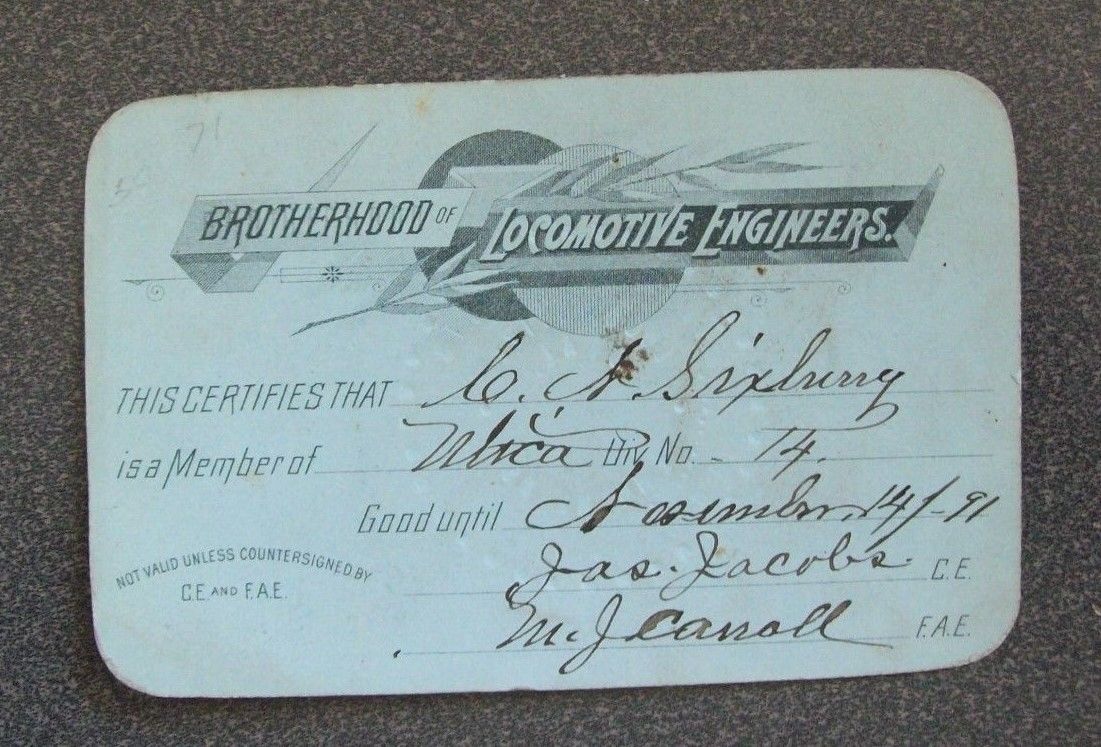 71
BROTHERHOOD OF LOCOMOTIVE ENGINEERS.
THIS CERTIFIES THAT C. A. Sixbury
is a Member of Utica Div. No. 14.
Good until November 14/-91
NOT VALID UNLESS COUNTERSIGNED BY
C.E. AND F.A.E.
Jas. Jacobs C.E.
M. J. Carroll F.A.E.